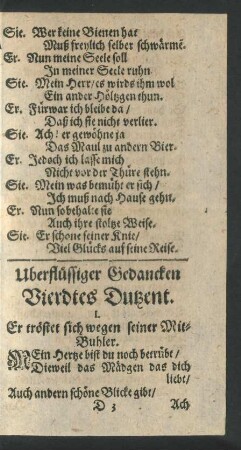 Sie. Wer keine Bienen hat
Muß freylich selber schwärmẽ.
Er. Nun meine Seele soll
In meiner Seele ruhn
Sie. Mein Herr/ es wirds ihm wol
Ein ander Höltzgen thun.
Er. Fürwar ich bleibe da/
Daß ich sie nicht verlier.
Sie. Ach! er gewöhne ja
Das Maul zu andern Bier.
Er. Jedoch ich lasse mich
Nicht vor der Thüre stehn.
Sie. Mein was bemüht er sich/
Ich muß nach Hause gehn.
Er. Nun so behalte sie
Auch ihre stoltze Weise.
Sie. Er schone seiner Knie/
Viel Glücks auf seine Reise.
Uberflüssiger Gedancken
Vierdtes Dutzent.
I.
Er tröstet sich wegen seiner Mit-
Buhler.
MEin Hertze bist du noch betrübt/
Dieweil das Mädgen das dich
liebt/
Auch andern schöne Blicke gibt/
D 3 Ach